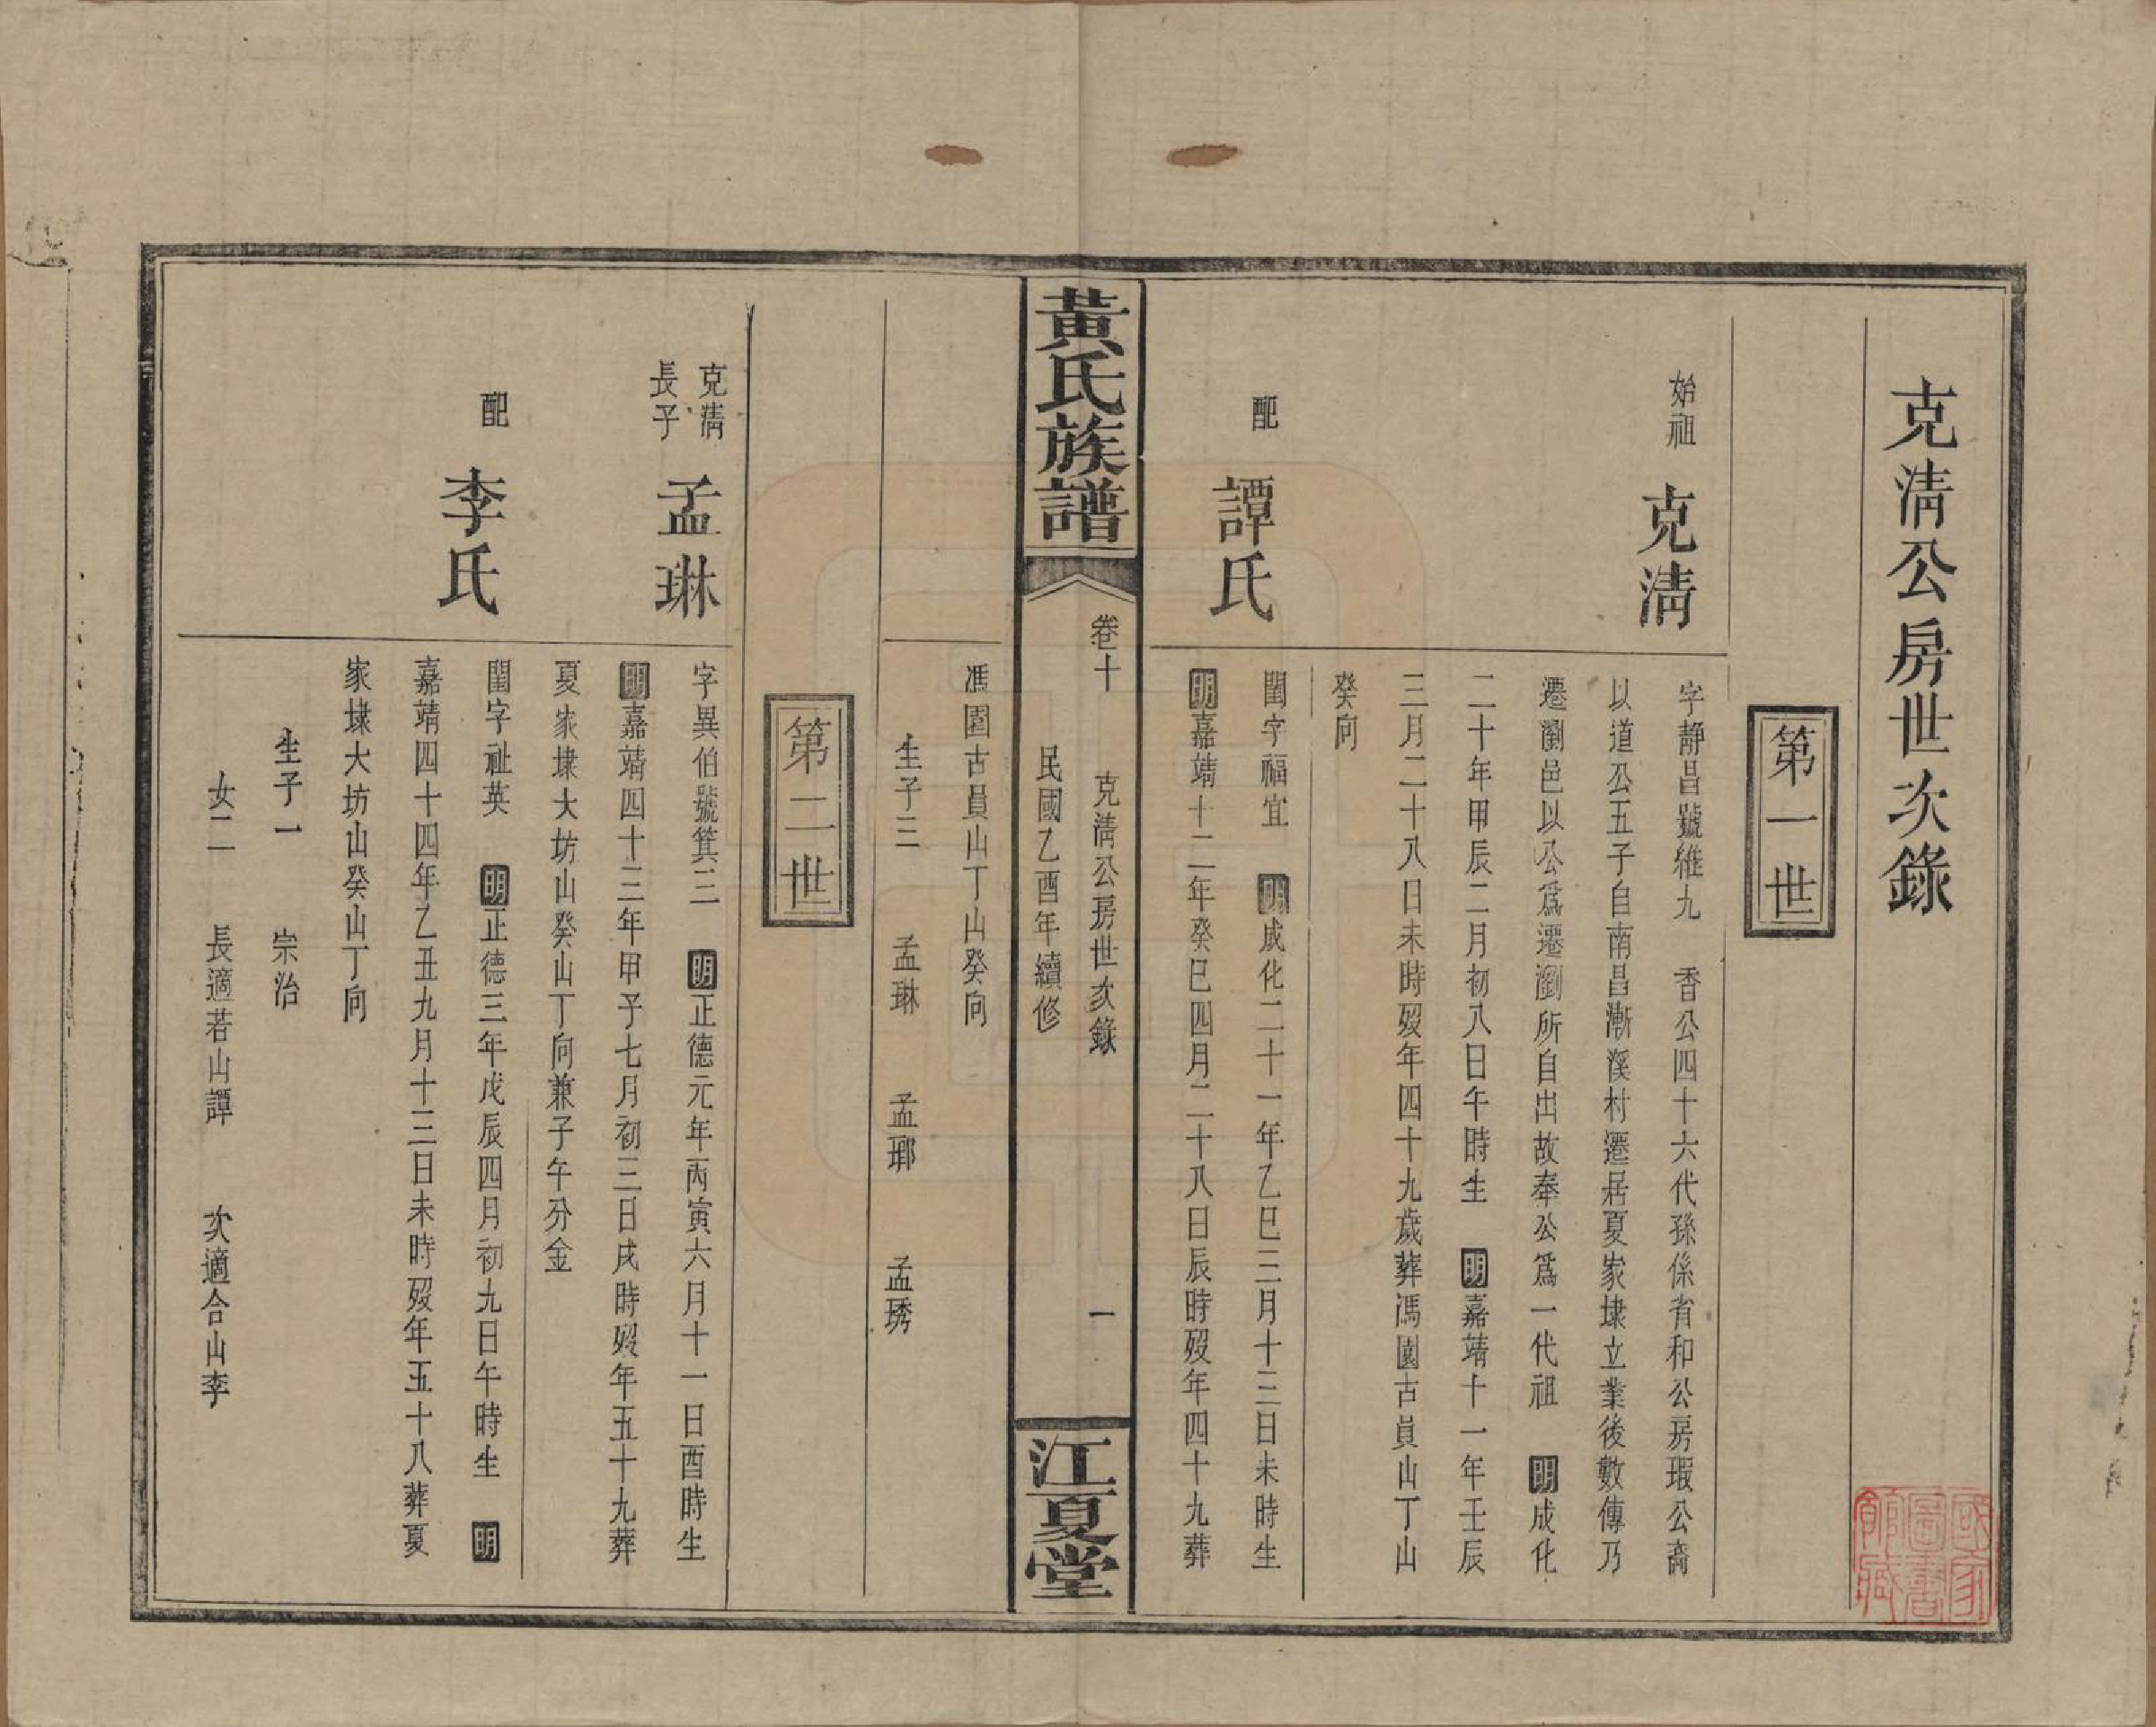 克淸公房世次錄
第一世
始祖
克淸
字靜昌號維九　香公四十六代孫係省和公房瑕公裔
以道公五子自南昌漸溪村遷居夏家埭立業後數傳乃
遷瀏邑以公爲遷瀏所自出故奉公爲一代祖　明成化
二十年甲辰二月初八日午時生　明嘉靖十一年壬辰
三月二十八日未時歿年四十九歲葬馮園古員山丁山
癸向
配
譚氏
閨字福宜　明成化二十一年乙巳三月十三日未時生
明嘉靖十二年癸巳四月二十八日辰時歿年四十九葬
黃氏族譜
卷十　克淸公房世次錄　一
民國乙酉年續修
江夏堂
馮園古員山丁山癸向
生子三　孟琳　孟瑯　孟琇
第二世
克淸
長子
孟琳
字異伯號箕三　明正德元年丙寅六月十一日酉時生
明嘉靖四十三年甲子七月初三日戌時歿年五十九葬
夏家埭大坊山癸山丁向兼子午分金
配
李氏
閨字祉英　明正德三年戊辰四月初九日午時生　明
嘉靖四十四年乙丑九月十三日未時歿年五十八葬夏
家埭大坊山癸山丁向
生子一　宗治
女二　長適若山譚　次適合山李
國家
圖書
館藏